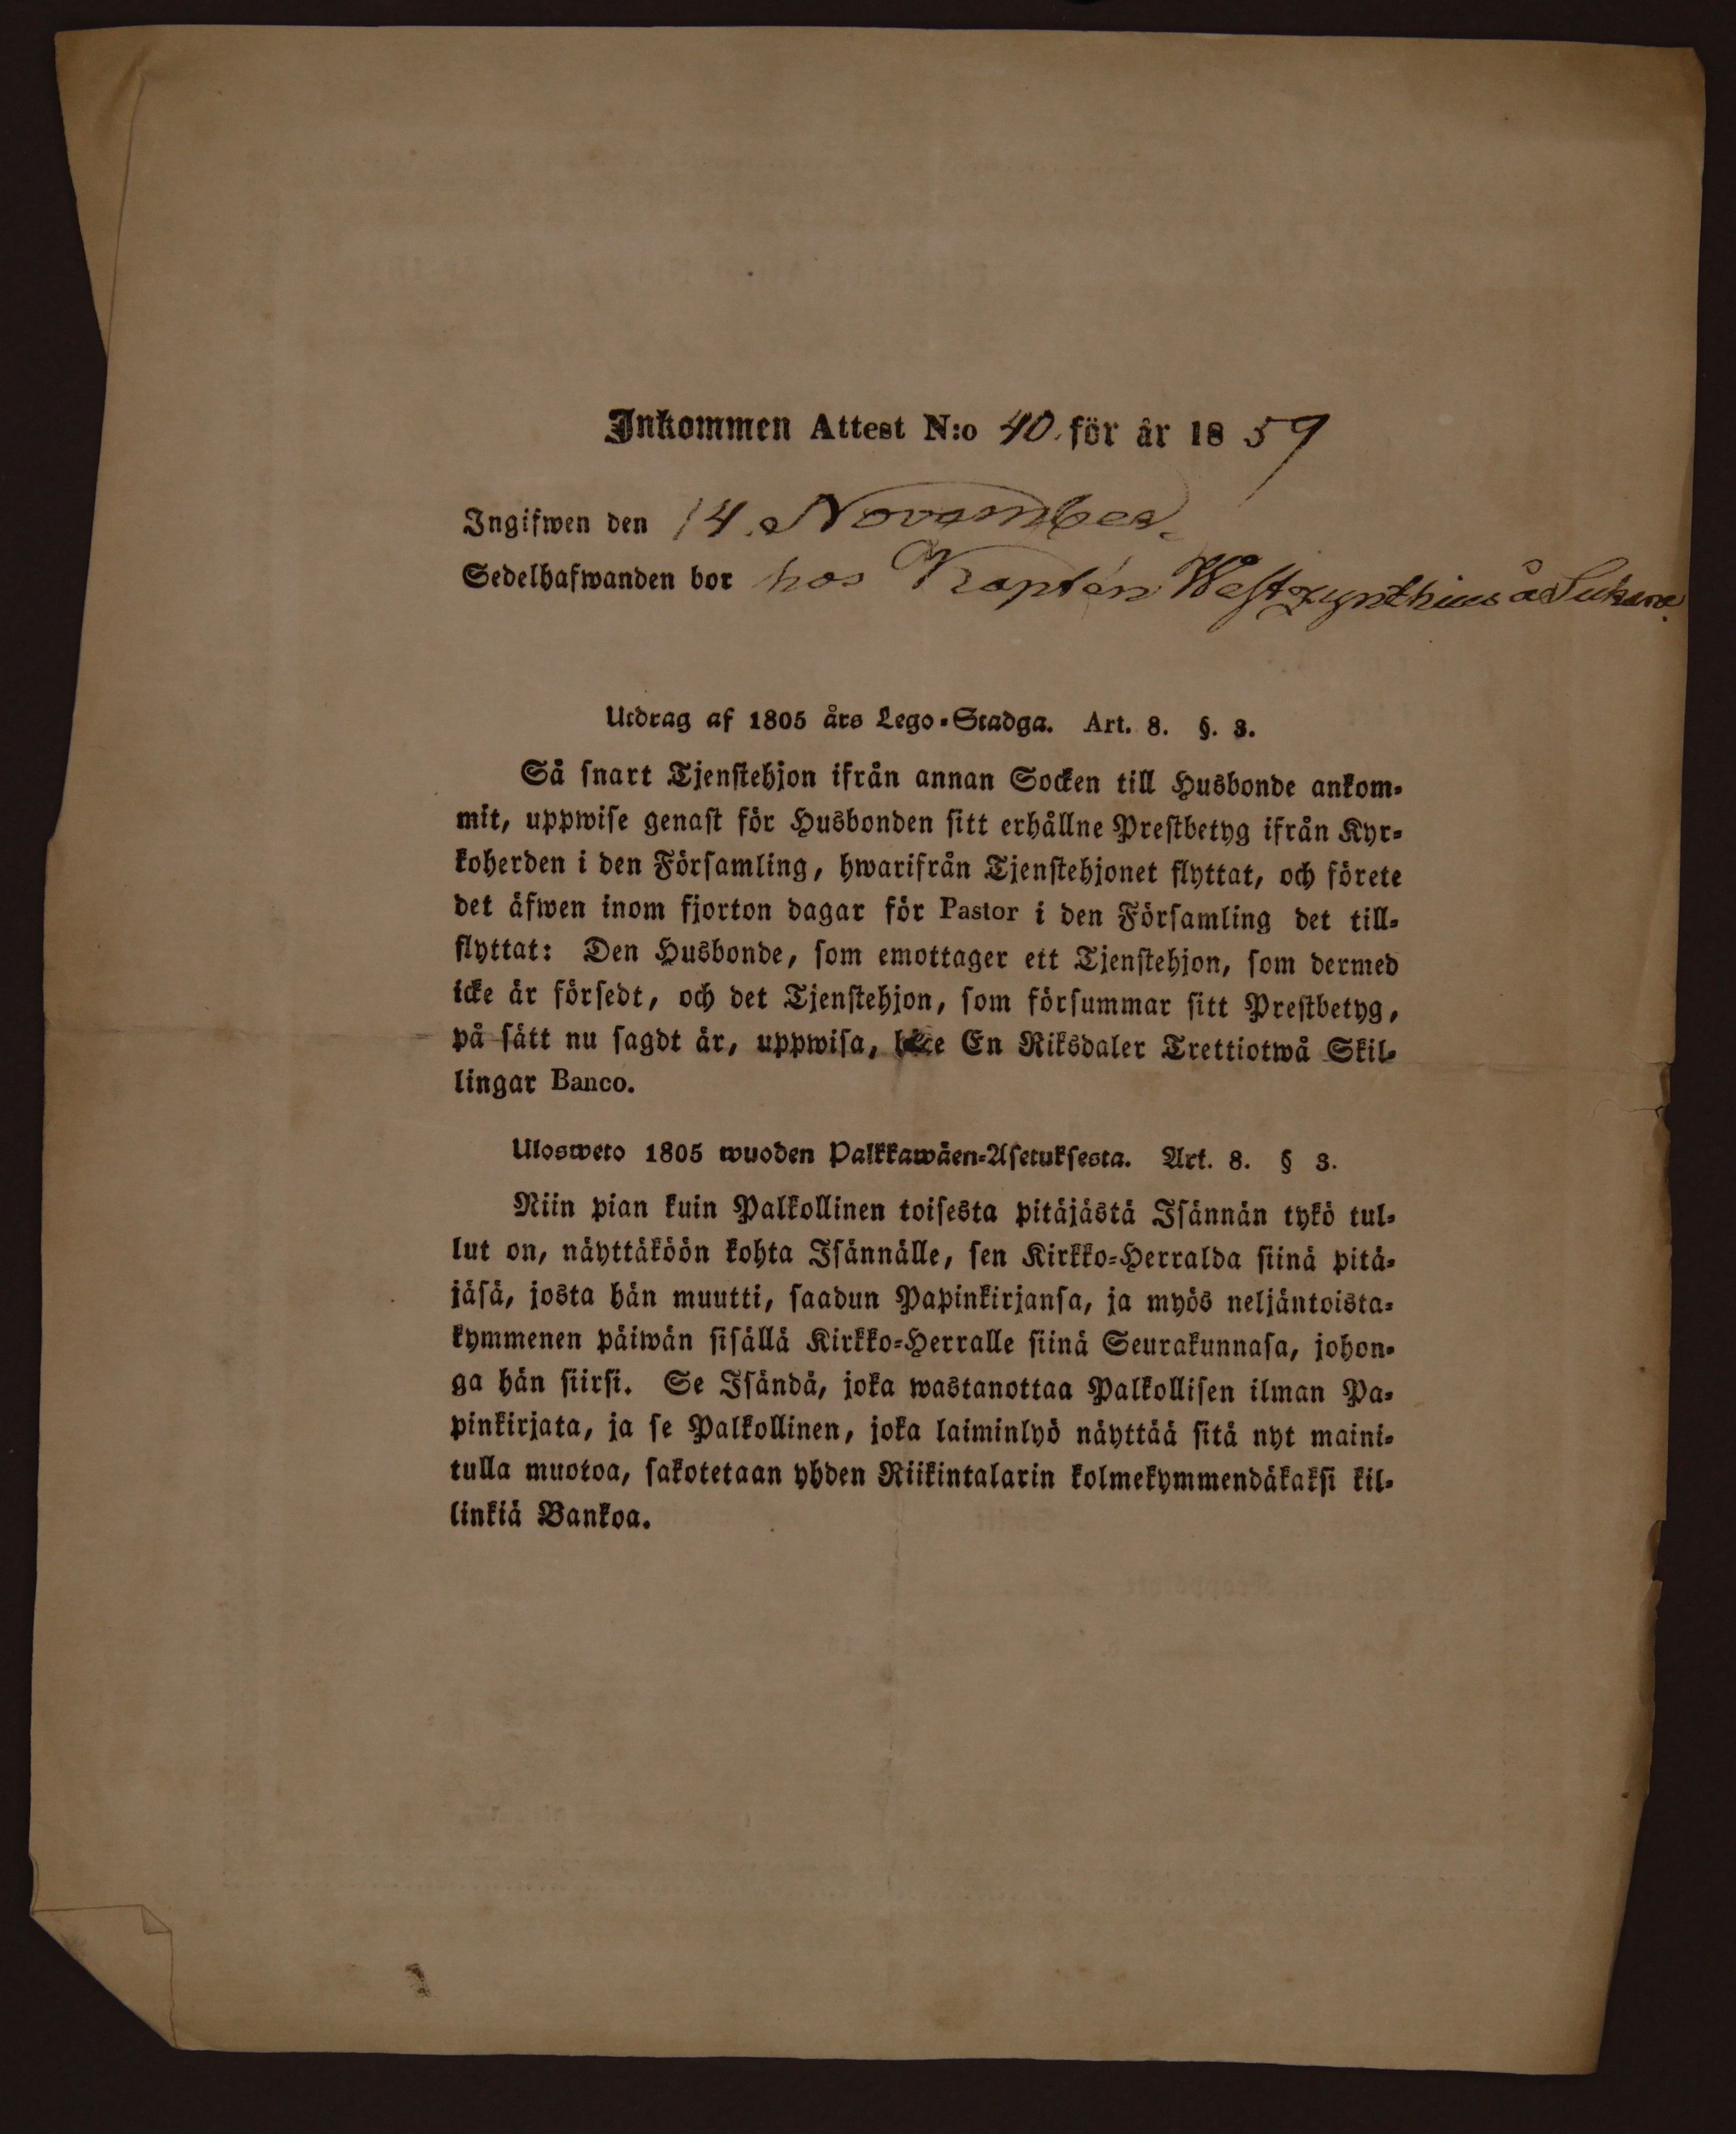 Inkommen Attest N:o 40. för år 1859
Ingifwen den 14. November.
Sedelhafwanden bor hos Kapten Westzynthius å
Utdrag af 1805 års Lego-Stadga. Art. 8. §. 3.
Så snart Tjenstehjon ifrån annan Socken till Husbonde ankom-
mit, uppwise genast för Husbonden sitt erhållne Prestbetyg ifrån Kyr-
koherden i den Församling, hwarifrån Tjenstehjonet flyttat, och förete
det äfwen inom fjorton dagar för Pastor i den Församling det till-
flyttat: Den Husbonde, som emottager ett Tjenstehjon, som dermed
icke är försedt, och det Tjenstehjon, som försummar sitt Prestbetyg,
på sätt nu sagdt är, uppwisa, En Riksdaler Trettiotwå Skil-
lingar Banco.
Ulosweto 1805 wuoden Palkkawäen-Asetuksesta. Art. 8. § 3.
Niin pian kuin Palkollinen toisesta pitäjästä Isännän tykö tul-
lut on, näyttäköön kohta Isännälle, sen Kirkko-Herralda siinä pitä-
jäsä, josta hän muutti, saadun Papinkirjansa, ja myös neljäntoista-
kymmenen päiwän sisällä Kirkko-Herralle siinä Seurakunnasa, johon-
ga hän siirsi. Se Isändä, joka wastanottaa Palkollisen ilman Pa-
pinkirjata, ja se Palkollinen, joka laiminlyö näyttää sitä nyt maini-
tulla muotoa, sakotetaan yhden Riikintalarin kolmekymmendäkaksi kil-
linkiä Bankoa.